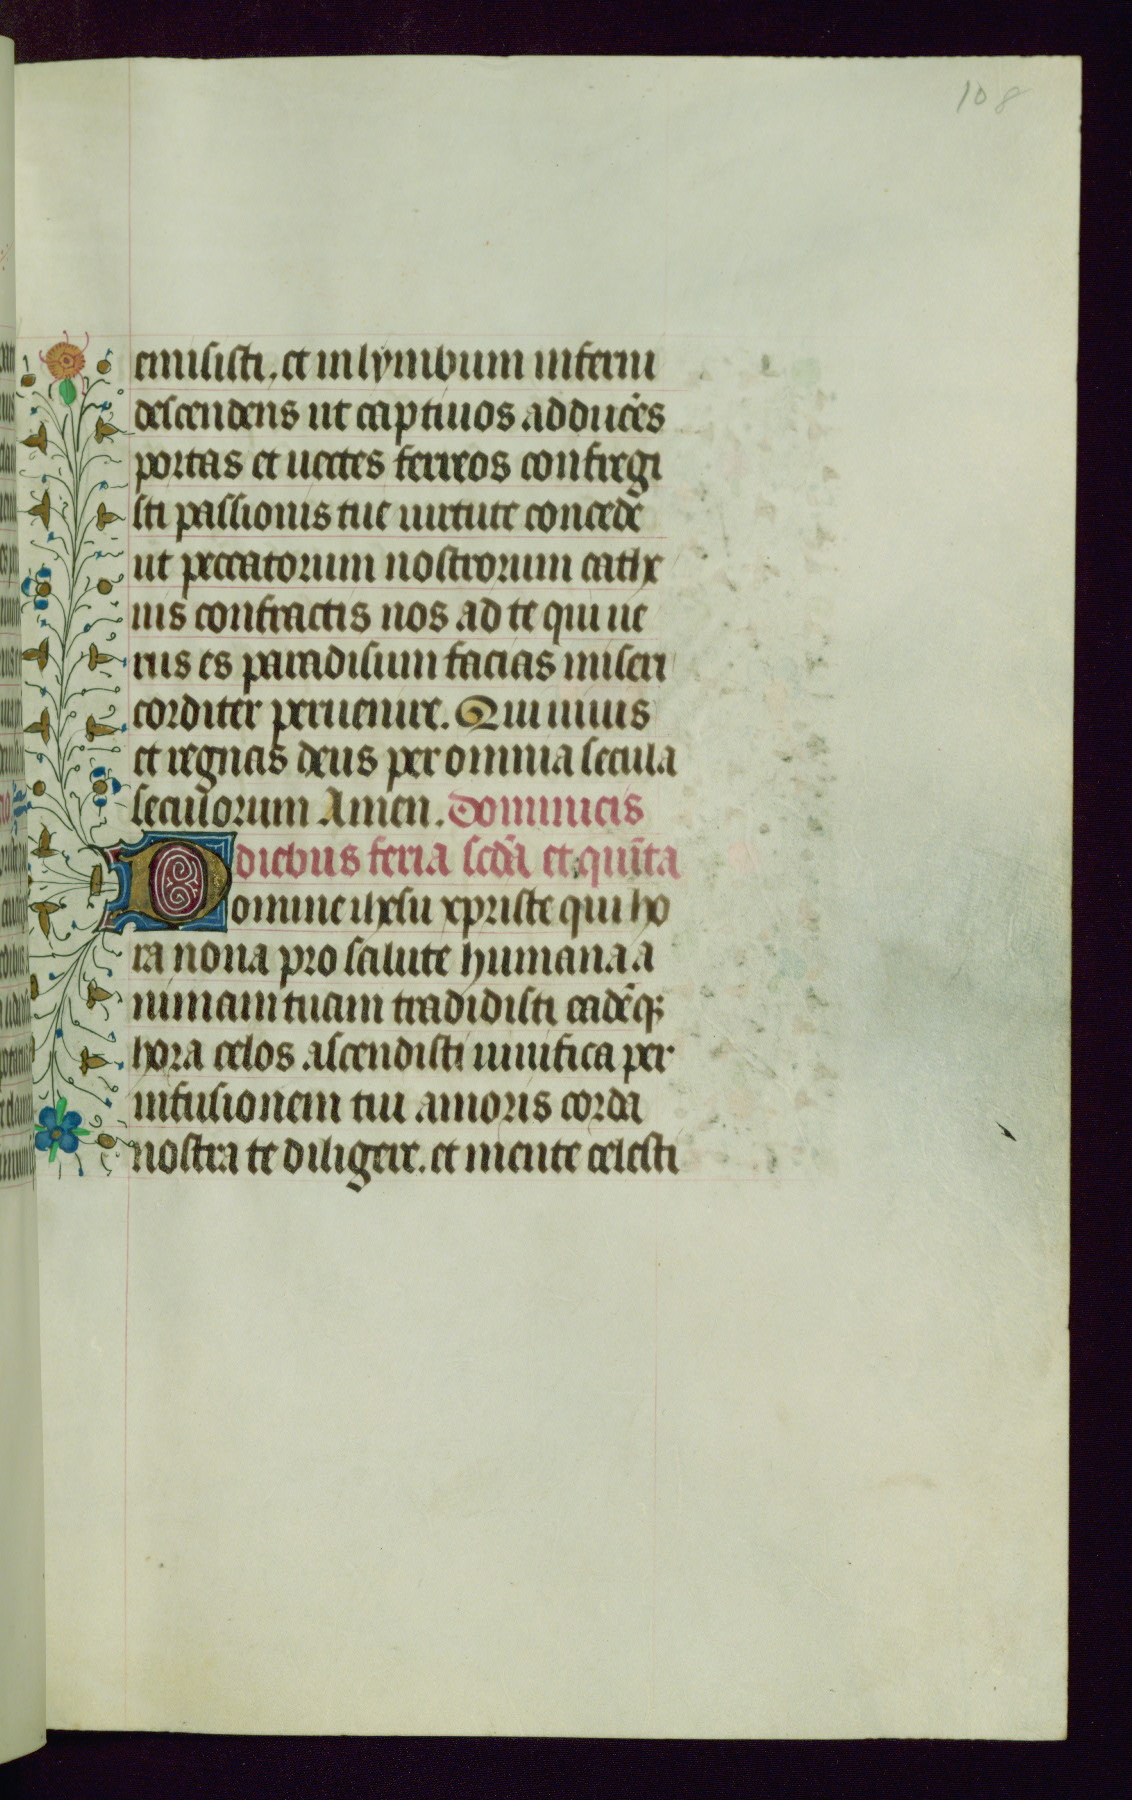 108
emisisti, et in lymbum inferni
descendens ut captiuos adducẽs
portas et uectes ferreos confregi
sti passionis tue uirtute concedẽ
ut peccatorum nostrorum cathe
nis confractis nos ad te qui ue
rus es paradisum facias miseri
corditer peruenire. Qui uiuis
et regnas deus per omnia secula
seculorum Amen. Dominicis
diebus feria scd̃a et quĩta
Domine ihesu xpriste qui ho
ra nona pro salute humana a
nimam tuam tradidisti eadẽqꝫ
hora celos ascendisti uiuifica per
infusionem tui amoris corda
nostra te diligere. et mente celesti